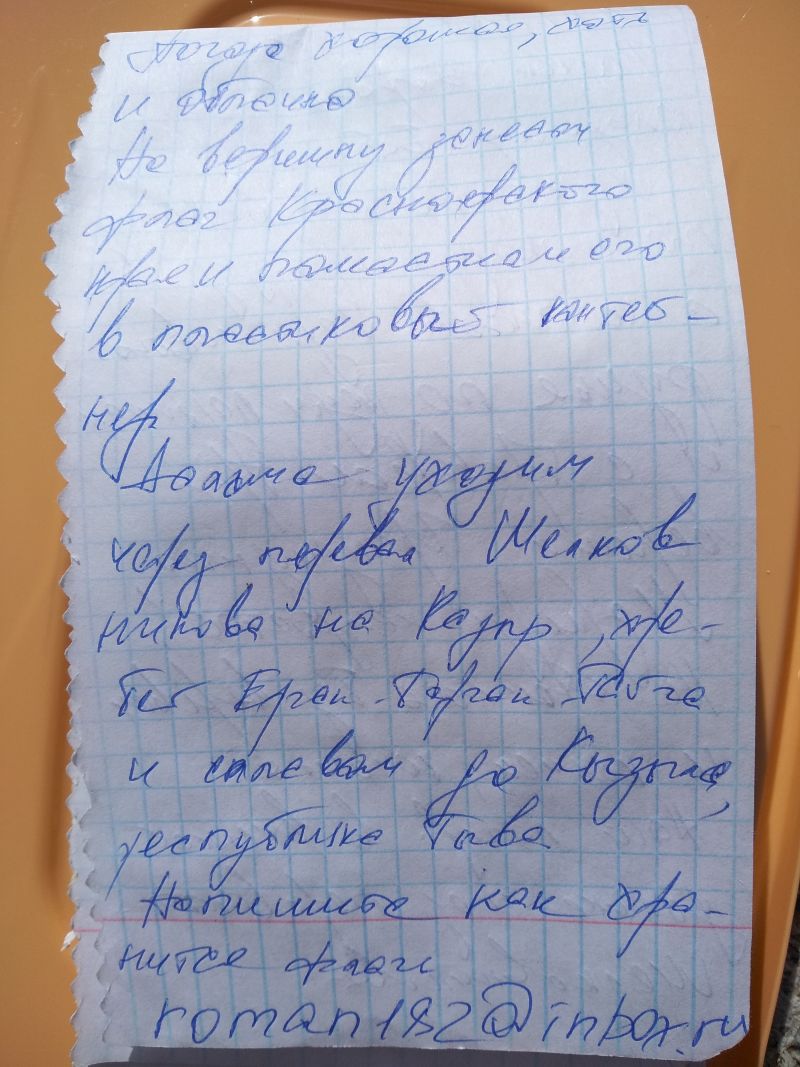 Погода хорошая, хоть
и облачно
На вершину занесли
флаг Красноярского
края и поместили его
в пластиковый контей-
нер
Дальше уходим
через перевал Шелков
никова на Казыр, хре-
бет Ергак-Таргак-Тайга
и сплавом до Кызыла,
республика Тыва
Напишите как хра-
нится флаг
roman182@inbox.ru